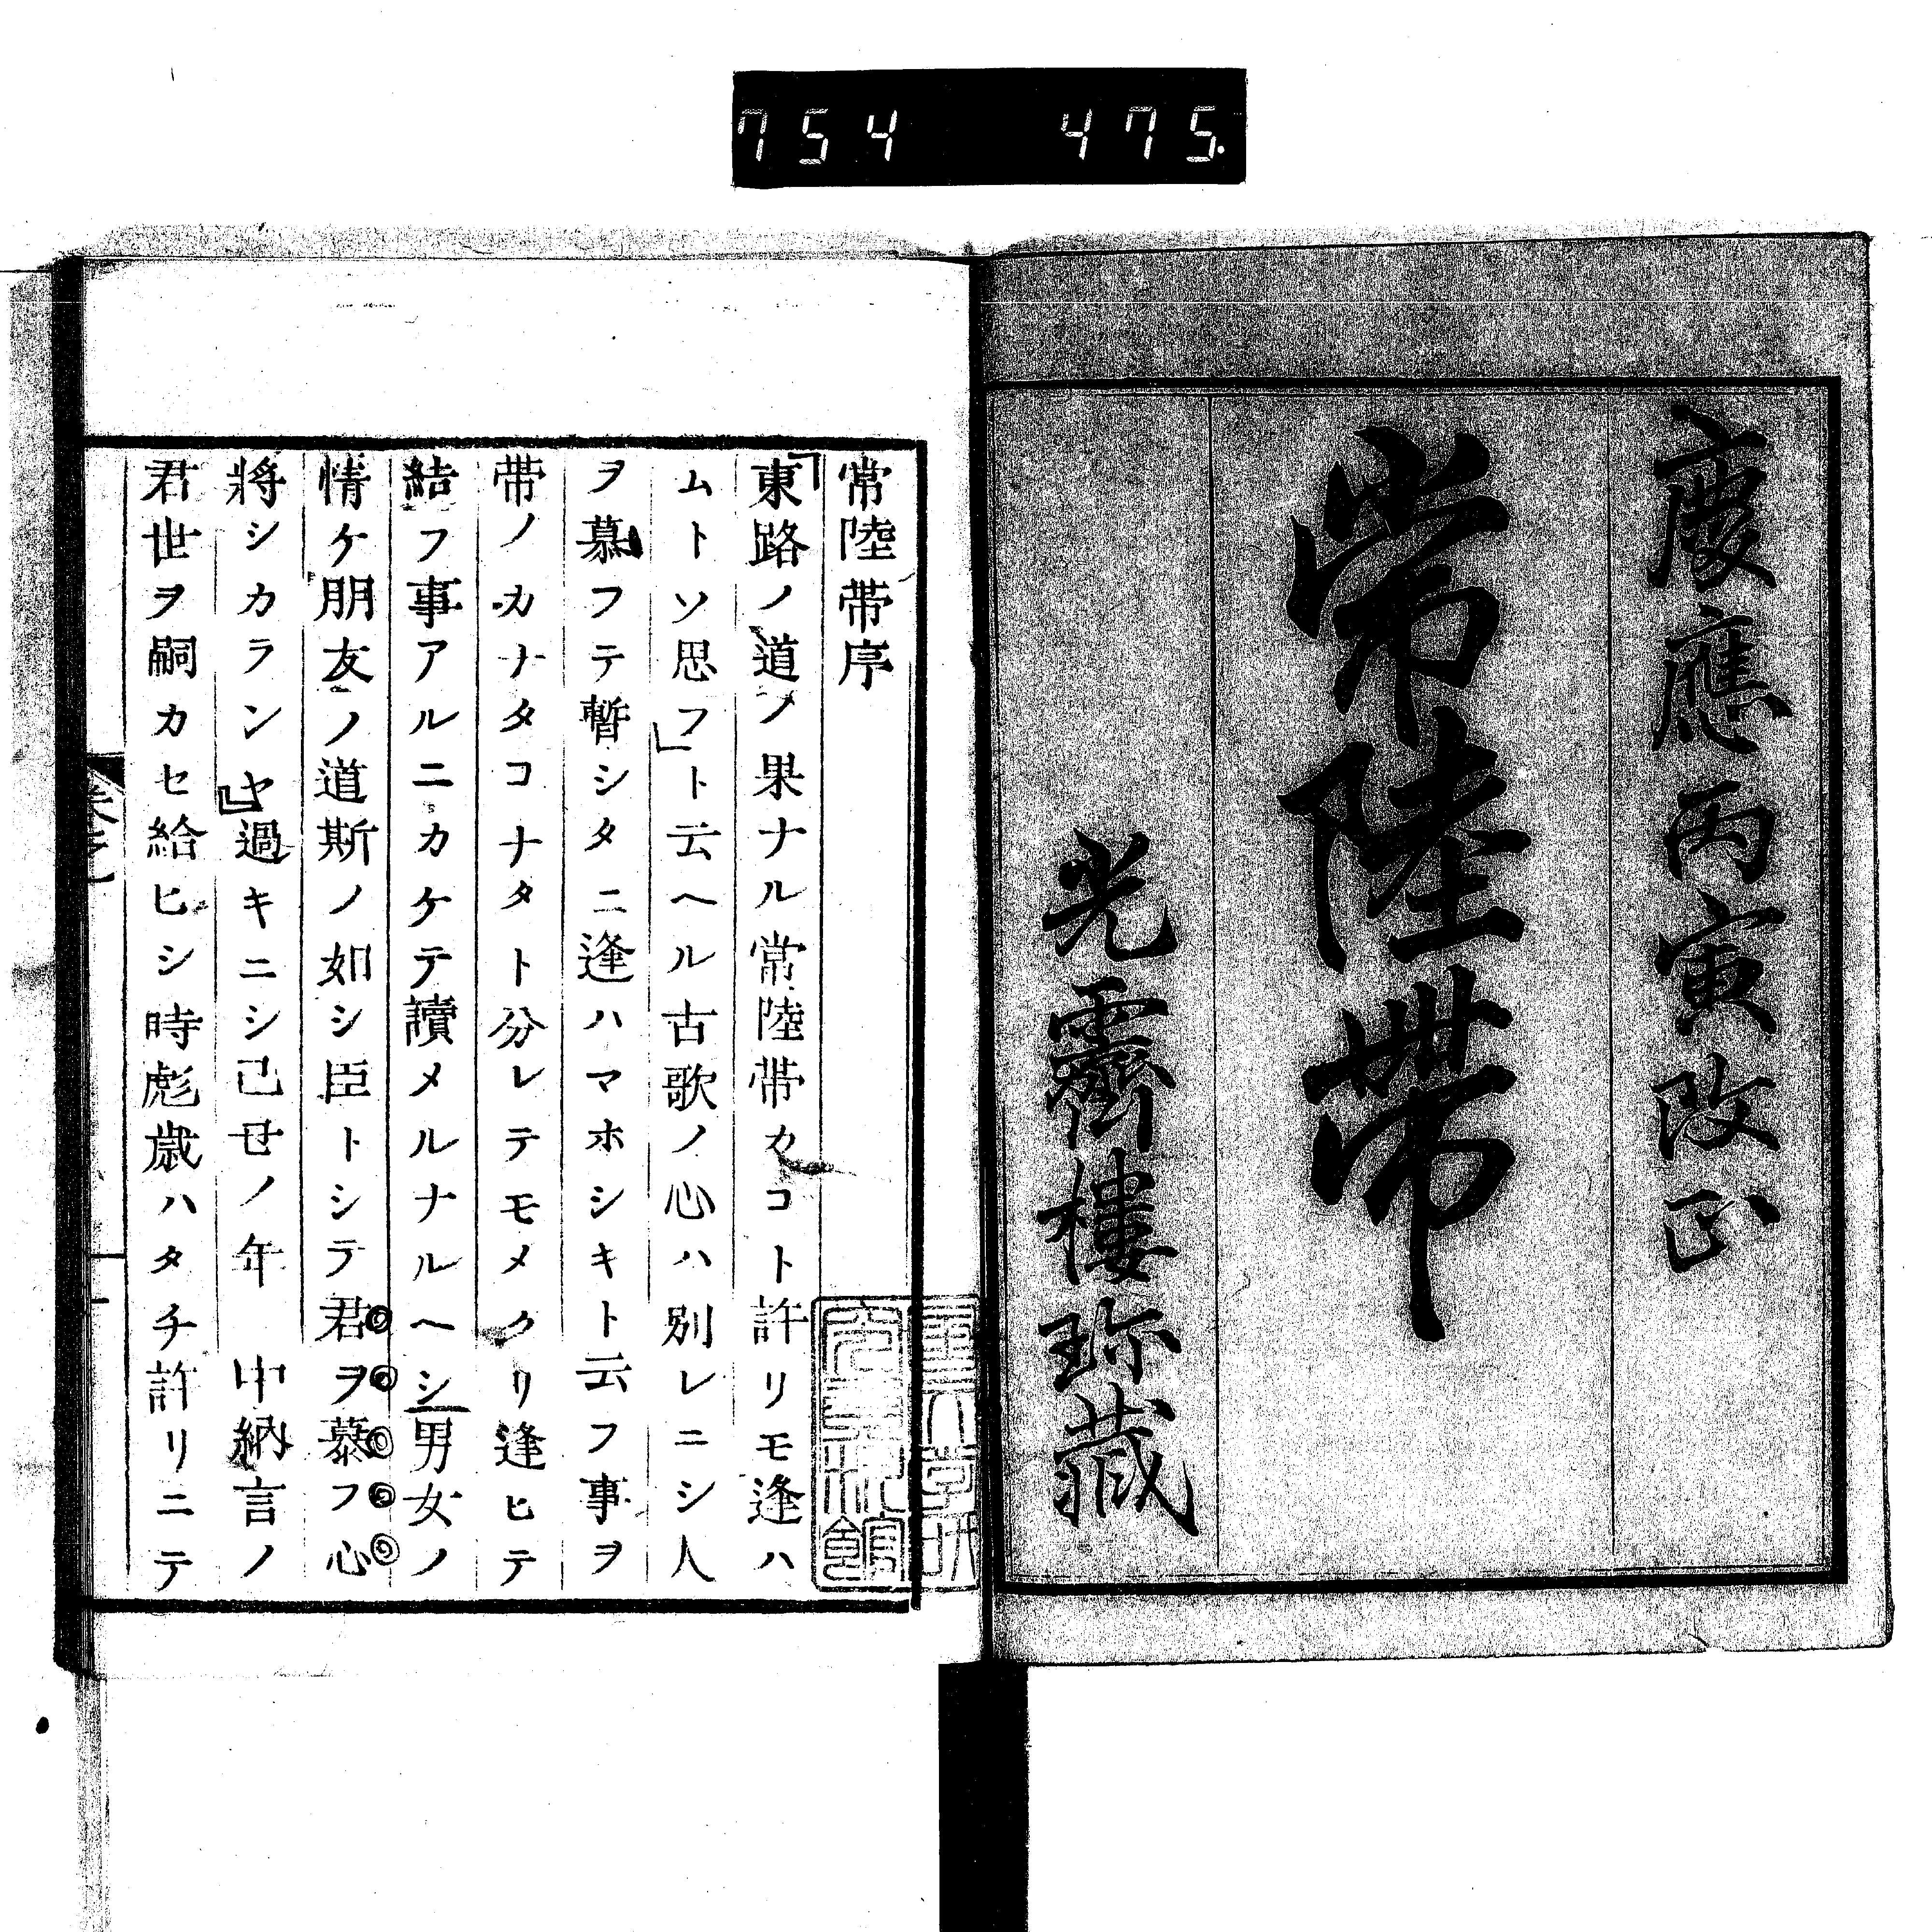 754 475.
慶應丙寅改正
常陸帶
光霽樓珎藏
常陸帶序
「東路ノ道ノ果ナル常陸帶カコト許リモ逢ハ
ムトソ思フ」ト云ヘル古歌ノ心ハ別レニシ人
ヲ慕フテ暫シタニ逢ハマホシキト云フ事ヲ
帶ノカナタコナタト分レテモメクリ逢ヒテ
結フ事アルニカケテ讀メルナルヘシ男女ノ
情ケ朋友ノ道斯ノ如シ臣トシテ君ヲ慕フ心
將シカランヤ」過キニシ己丑ノ年 中納言ノ
君世ヲ嗣カセ給ヒシ時彪歳ハタチ許リニテ